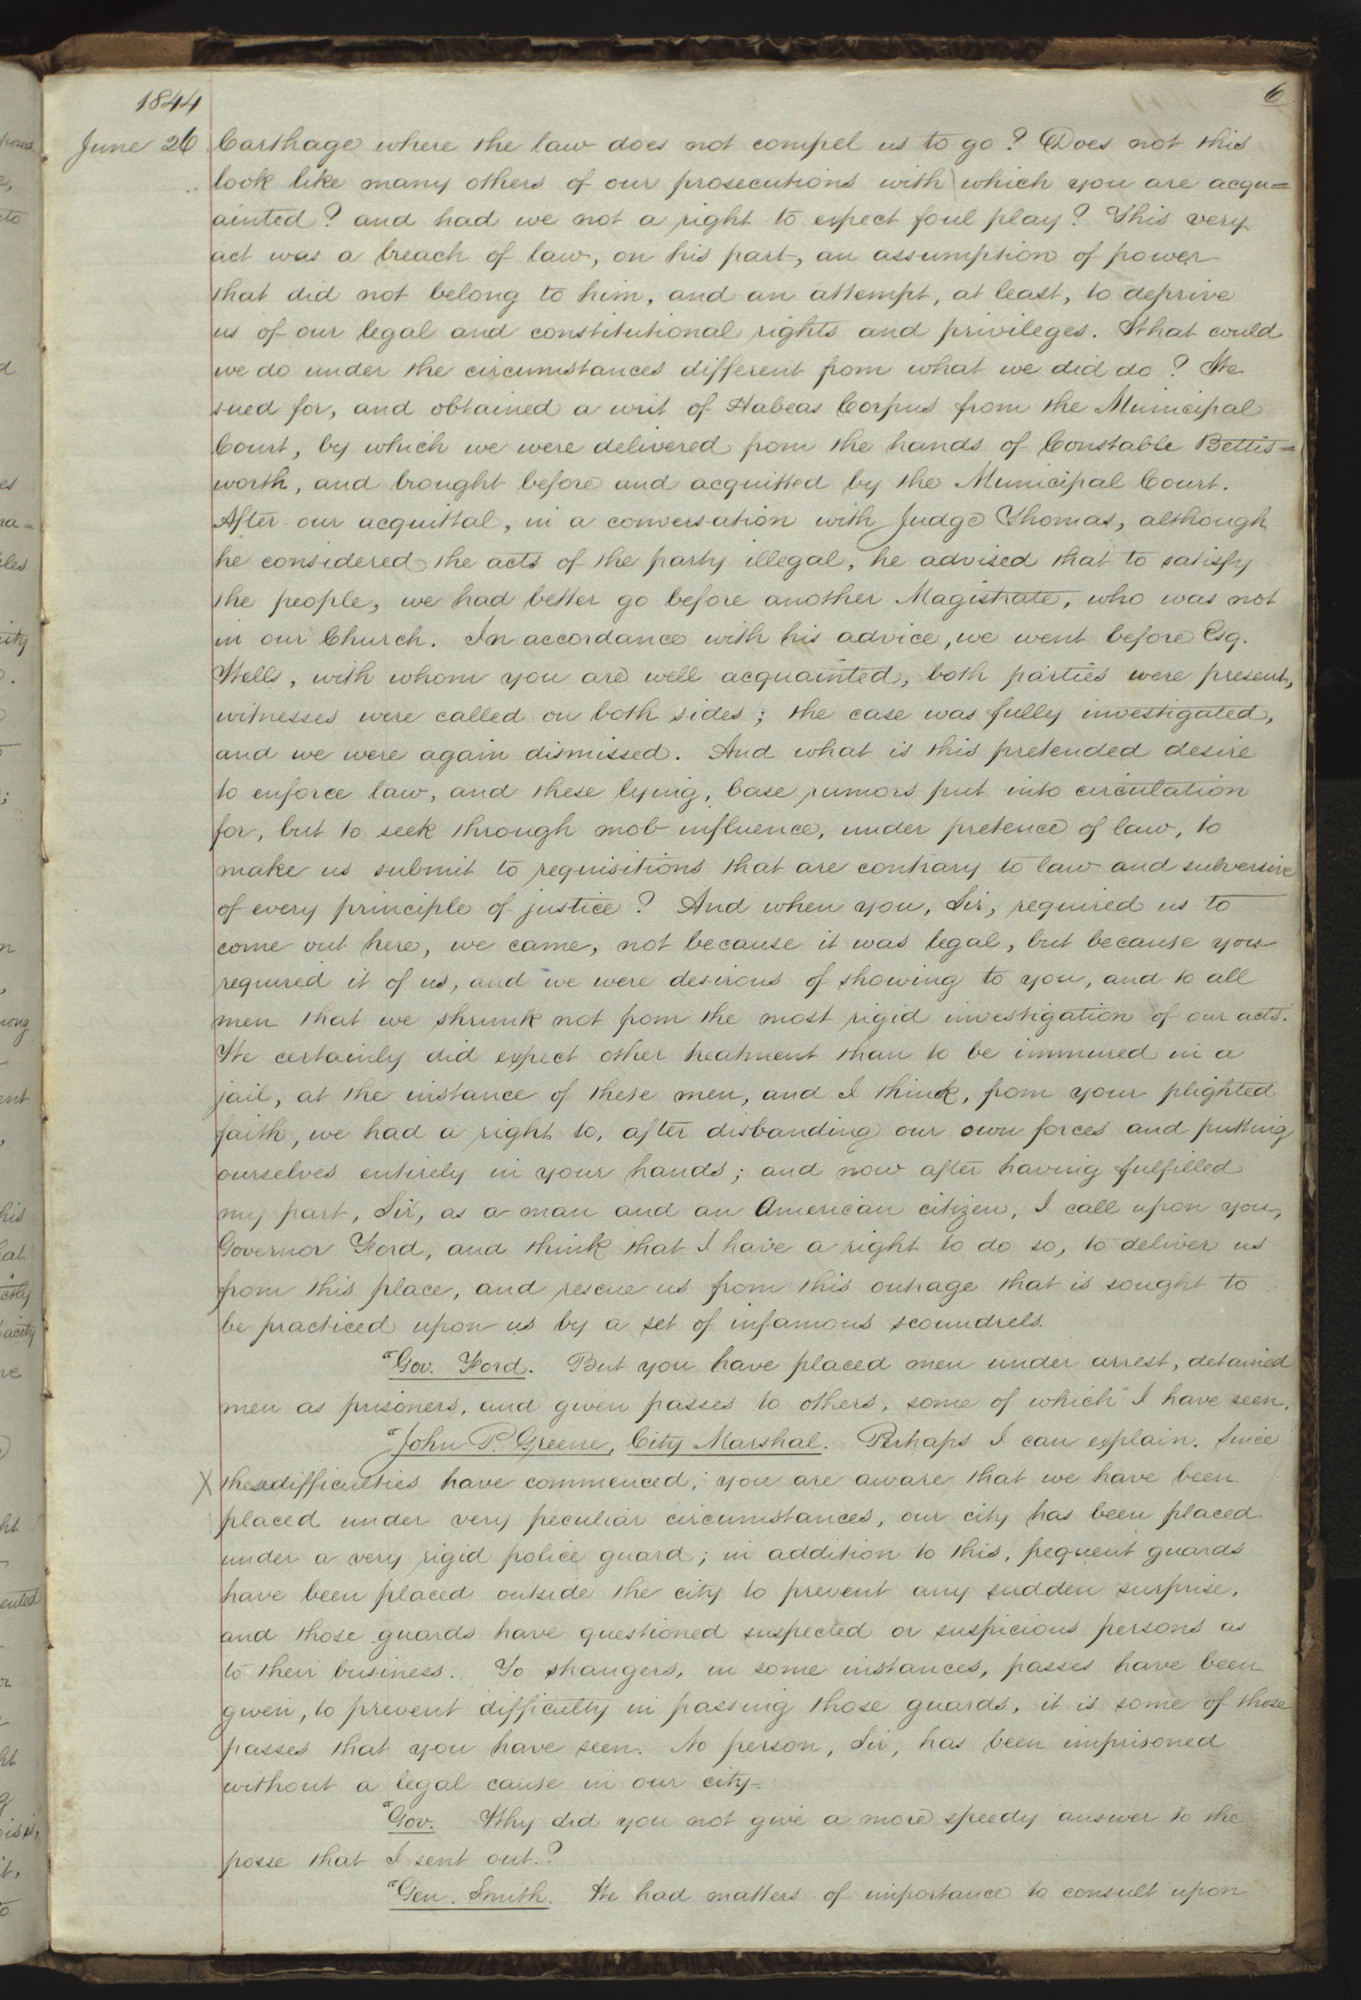 1844
6
June 26 Carthage where the law does not compel us to go? Does not this
look like many others of our prosecutions with which you are acqu=
ainted? and had we not a right to expect foul play? This very
act was a breach of law, on his part, an assumption of power
that did not belong to him, and an attempt, at least, to deprive
us of our legal and constitutional rights and privileges. What could
we do under the circumstances different from what we did do? We
sued for, and obtained a writ of Habeas Corpus from the Municipal
Court, by which we were delivered from the hands of Constable Bettis=
worth, and brought before and acquitted by the Municipal Court.
After our acquittal, in a conversation with Judge Thomas, although
he considered the acts of the party illegal, he advised that to satisfy
the people, we had better go before another Magistrate, who was not
in our Church. In accordance with his advice, we went before Esq.
Wells, with whom you are well acquainted, both parties were present,
witnesses were called on both sides; the case was fully investigated,
and we were again dismissed. And what is this pretended desire
to enforce law, and these lying, base rumors put into circulation
for, but to seek through mob influence, under pretence of law, to
make us submit to requisitions that are contrary to law and subversive
of every principle of justice? And when you, Sir, required us to
come out here, we came, not because it was legal, but because you
required it of us, and we were desirous of showing to you, and to all
men that we shrunk not from the most rigid investigation of our acts.
We certainly did expect other treatment than to be immured in a
jail, at the instance of these men, and I think, from your plighted
faith, we had a right to, after disbanding our own forces and putting
ourselves entirely in your hands; and now after having fulfilled
my part, Sir, as a man and an American citizen, I call upon you,
Governor Ford, and think that I have a right to do so, to deliver us
from this place, and rescue us from this outrage that is sought to
be practiced upon us by a set of infamous scoundrels.
"Gov. Ford. But you have placed men under arrest, detained
men as prisoners, and given passes to others, some of which I have seen.
"John P. Greene, City Marshal. Perhaps I can explain. Since
X these difficulties have commenced, you are aware that we have been
placed under very peculiar circumstances, our city has been placed
under a very rigid police guard; in addition to this, frequent guards
have been placed outside the city to prevent any sudden surprise,
and those guards have questioned suspected or suspicious persons as
to their business. To strangers, in some instances, passes have been
given, to prevent difficulty in passing those guards, it is some of those
passes that you have seen. No person, Sir, has been imprisoned
without a legal cause in our city.
"Gov. Why did you not give a more speedy answer to the
posse that I sent out.?
"Gen. Smith. We had matters of importance to consult upon